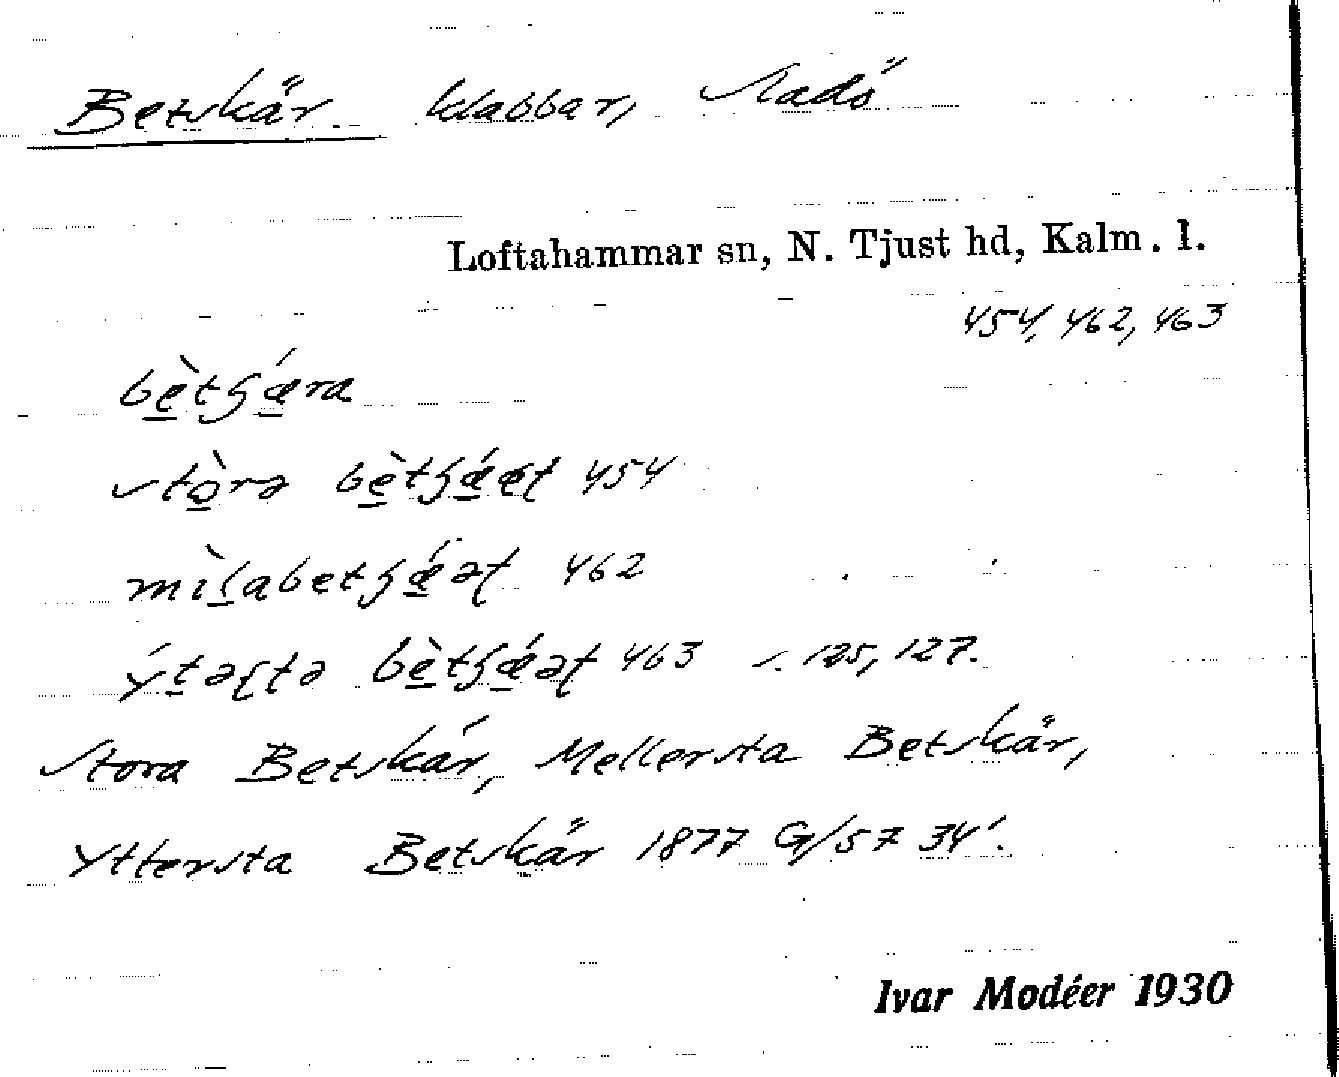 Betskär klabbar, Sladö
Loftahammar sn, N. Tjust hd, Kalm. l.
454, 462, 463
bètʂǽra
stòrə bètʂǽæʈ 454
mìʂabetʂǽəʈ 462
ýtəʂʈə bètʂǽəʈ 463 s. 125, 127.
Stora Betskär, Mellersta Betskär,
Yttersta Betskär 1877 G/57 34'.
Ivar Modéer 1930